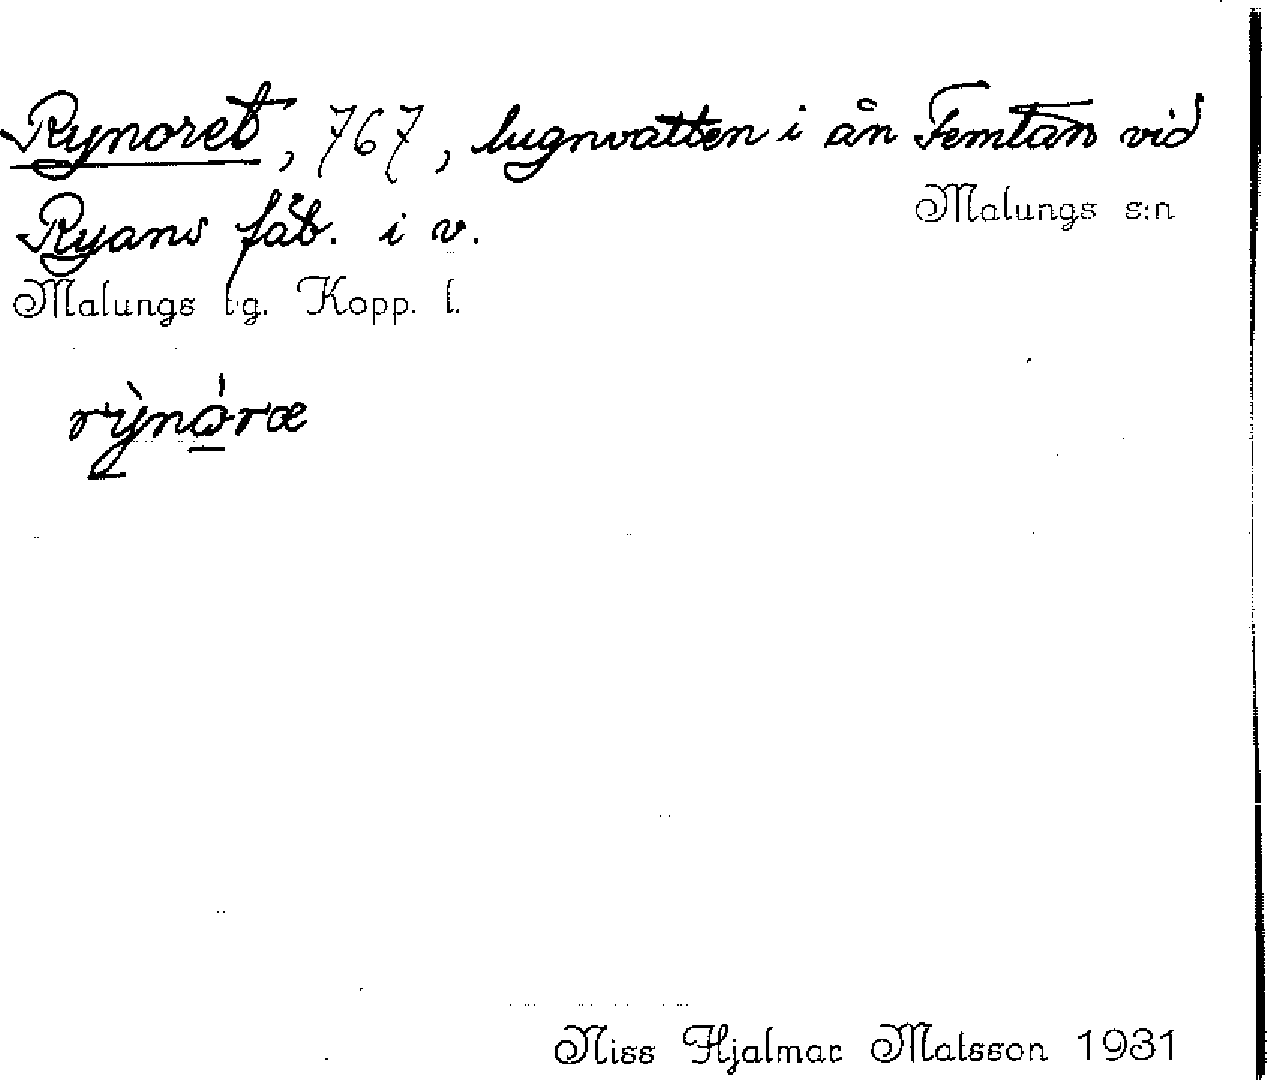 Rynoret, 767, lugnvatten i ån Femtan vid
Malungs s:n
Ryans fäb. i v.
Malungs tg. Kopp. l.
rỳnóræ
Niss Hjalmar Matsson 1931